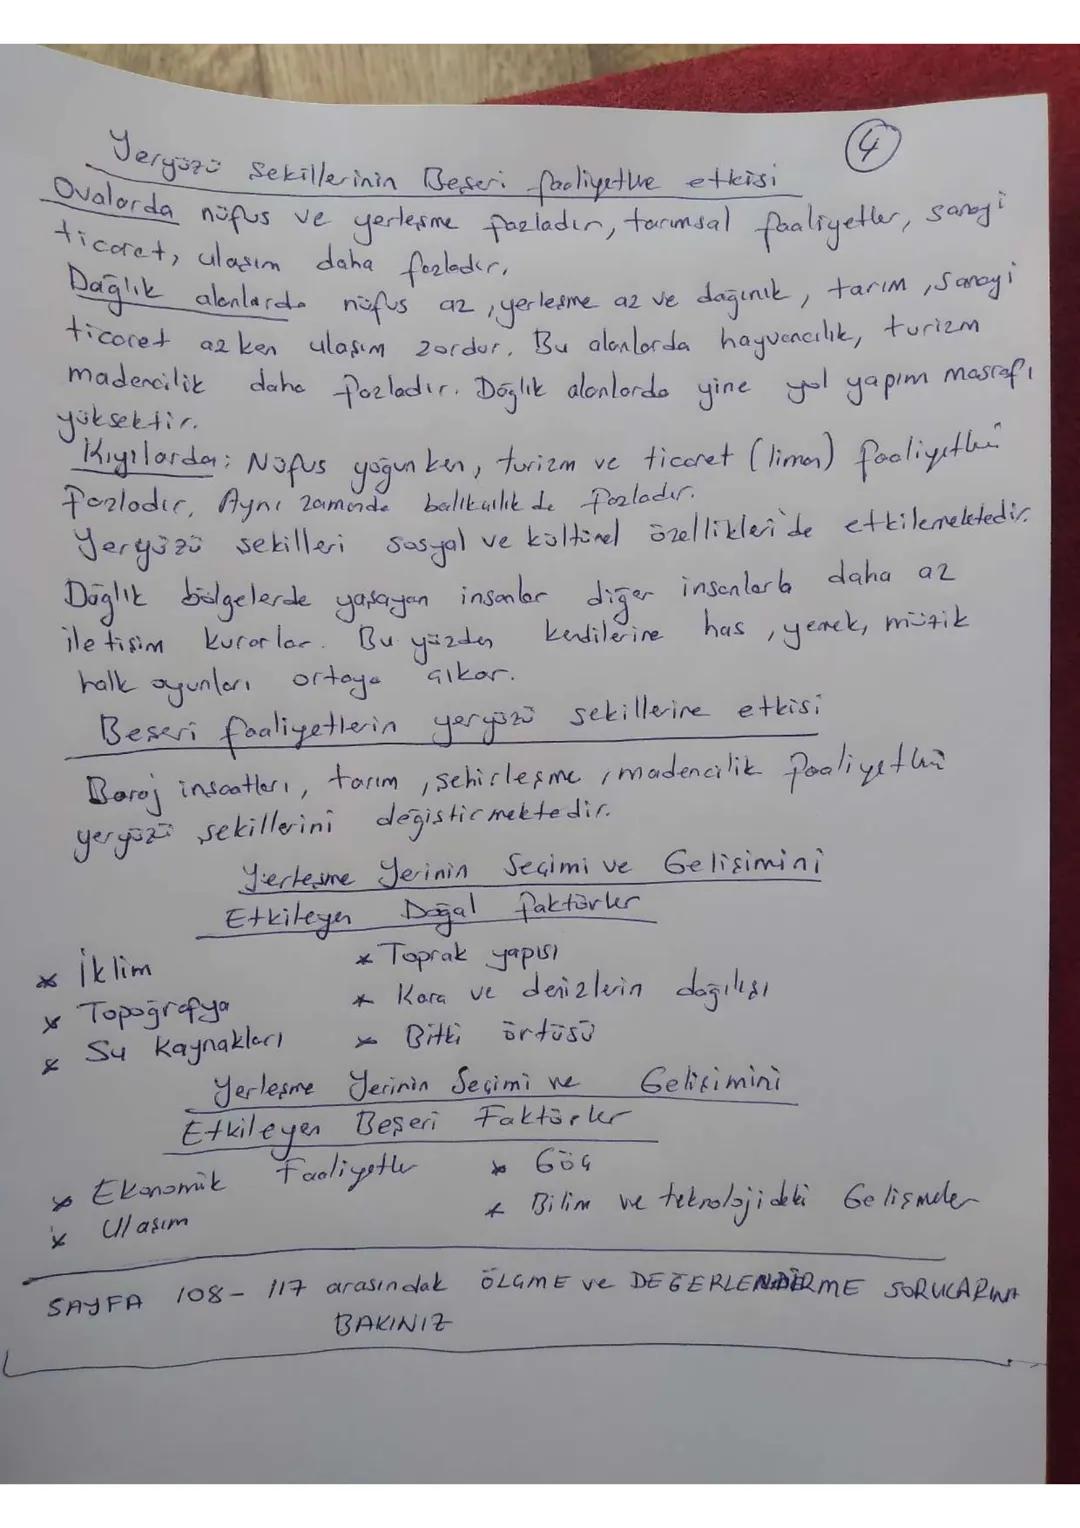 4
Yeryüzü Şekillerinin Beşeri faaliyetlre etkisi
Ovalarda nüfus ve yerleşme fazladır, tarımsal faaliyetler, sanayi
ticaret, ulaşım daha fazladır.
Dağlık alanlarda nüfus az, yerleşme az ve dağınık, tarım, sanayi
ticaret azken ulaşım zordur. Bu alanlarda hayvancılık, turizm
madencilik daha fazladır. Dağlık alanlarda yine yol yapım masrafı
yüksektir.
Kıyılarda; Nüfus yoğunken, turizm ve ticaret (liman) faaliyetleri
fazladır. Aynı zamanda balıkçılık da fazladır.
Yeryüzü şekilleri sosyal ve kültürel özellikleri'de etkilemektedir.
Dağlık bölgelerde yaşayan insanlar diğer insanlarla daha az
iletişim kurarlar. Bu yüzden kendilerine has, yemek, müzik
halk oyunları ortaya çıkar.
Beşeri faaliyetlerin yeryüzü şekillerine etkisi
Baraj inşaatları, tarım, şehirleşme, madencilik faaliyetleri
yeryüzü şekillerini değiştirmektedir.
Yerleşme Yerinin Seçimi ve Gelişimini
Etkileyen Doğal faktörler
* İklim
* Toprak yapısı
* Topoğrafya
* Kara ve denizlerin dağılışı
* Su Kaynakları
* Bitki örtüsü
Yerleşme Yerinin Seçimi ve Gelişimini
Etkileyen Beşeri Faktörler
* Ekonomik Faaliyetler
* Göç
* Ulaşım
* Bilim ve teknolojideki Gelişmeler
SAYFA 108-117 arasındak ÖLÇME ve DEĞERLENDİRME SORULARINA
BAKINIZ